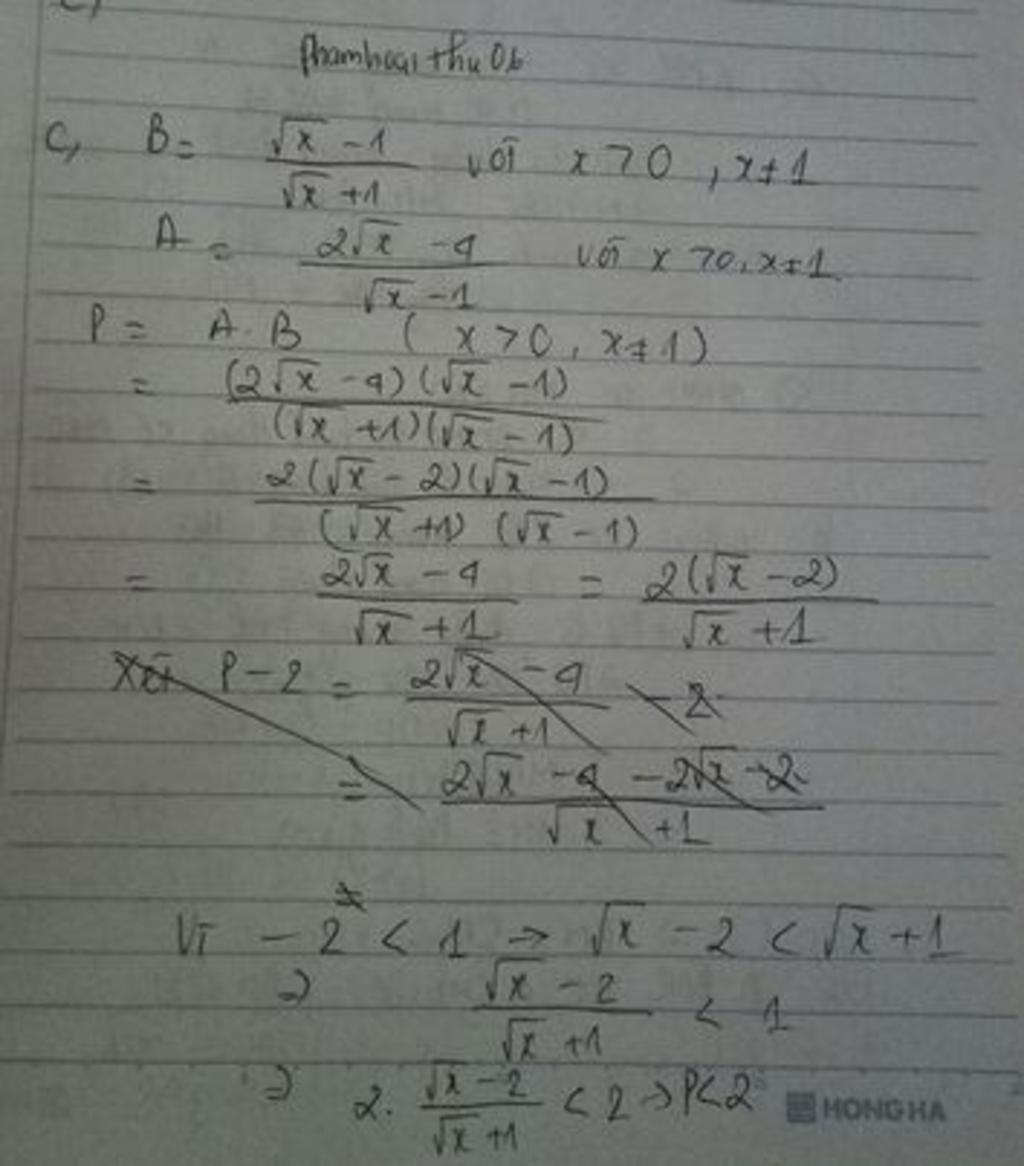 Phamhoaithu06
c, B = \frac{\sqrt{x} - 1}{\sqrt{x} + 1} với x > 0, x ≠ 1
A = \frac{2\sqrt{x} - 4}{\sqrt{x} - 1} với x > 0, x ≠ 1
P = A.B (x > 0, x ≠ 1)
= \frac{(2\sqrt{x} - 4)(\sqrt{x} - 1)}{(\sqrt{x} + 1)(\sqrt{x} - 1)}
= \frac{2(\sqrt{x} - 2)(\sqrt{x} - 1)}{(\sqrt{x} + 1)(\sqrt{x} - 1)}
= \frac{2\sqrt{x} - 4}{\sqrt{x} + 1} = \frac{2(\sqrt{x} - 2)}{\sqrt{x} + 1}
Xét P - 2 = \frac{2\sqrt{x} - 4}{\sqrt{x} + 1} - 2
= \frac{2\sqrt{x} - 4 - 2\sqrt{x} - 2}{\sqrt{x} + 1}
Vì - 2 < 1 → \sqrt{x} - 2 < \sqrt{x} + 1
⇒ \frac{\sqrt{x} - 2}{\sqrt{x} + 1} < 1
⇒ 2. \frac{\sqrt{x} - 2}{\sqrt{x} + 1} < 2 → P < 2
HONG HA